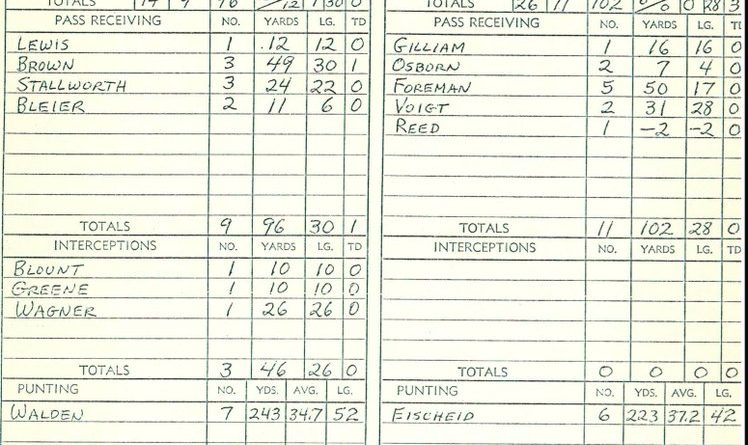 TOTALS 14 9 96 1 30 0
PASS RECEIVING NO. YARDS LG. TD
LEWIS 1 .12 12 0
BROWN 3 49 30 1
STALLWORTH 3 24 22 0
BLEIER 2 11 6 0
TOTALS 9 96 30 1
INTERCEPTIONS NO. YARDS LG. TD
BLOUNT 1 10 10 0
GREENE 1 10 10 0
WAGNER 1 26 26 0
TOTALS 3 46 26 0
PUNTING NO. YDS. AVG. LG.
WALDEN 7 243 34.7 52
TOTALS 26 11 102 0/0 0 28 3
PASS RECEIVING NO. YARDS LG. TD
GILLIAM 1 16 16 0
OSBORN 2 7 4 0
FOREMAN 5 50 17 0
VOIGT 2 31 28 0
REED 1 -2 -2 0
TOTALS 11 102 28 0
INTERCEPTIONS NO. YARDS LG. TD
TOTALS 0 0 0 0
PUNTING NO. YDS. AVG. LG.
EISCHEID 6 223 37.2 42